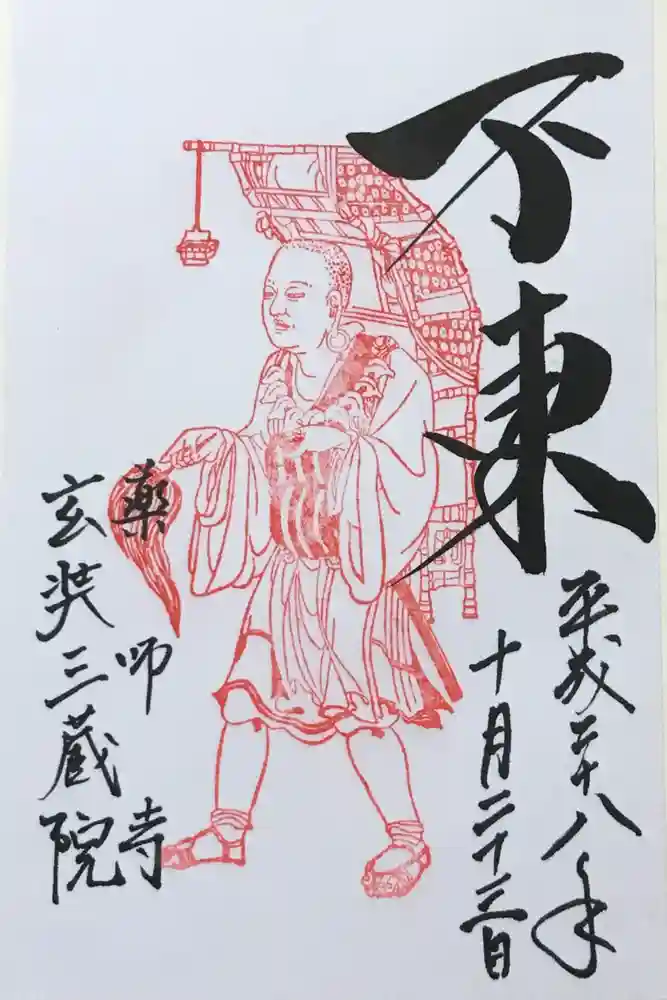 不東
平成二十八年
十月二十三日
薬師寺
玄奘三蔵院